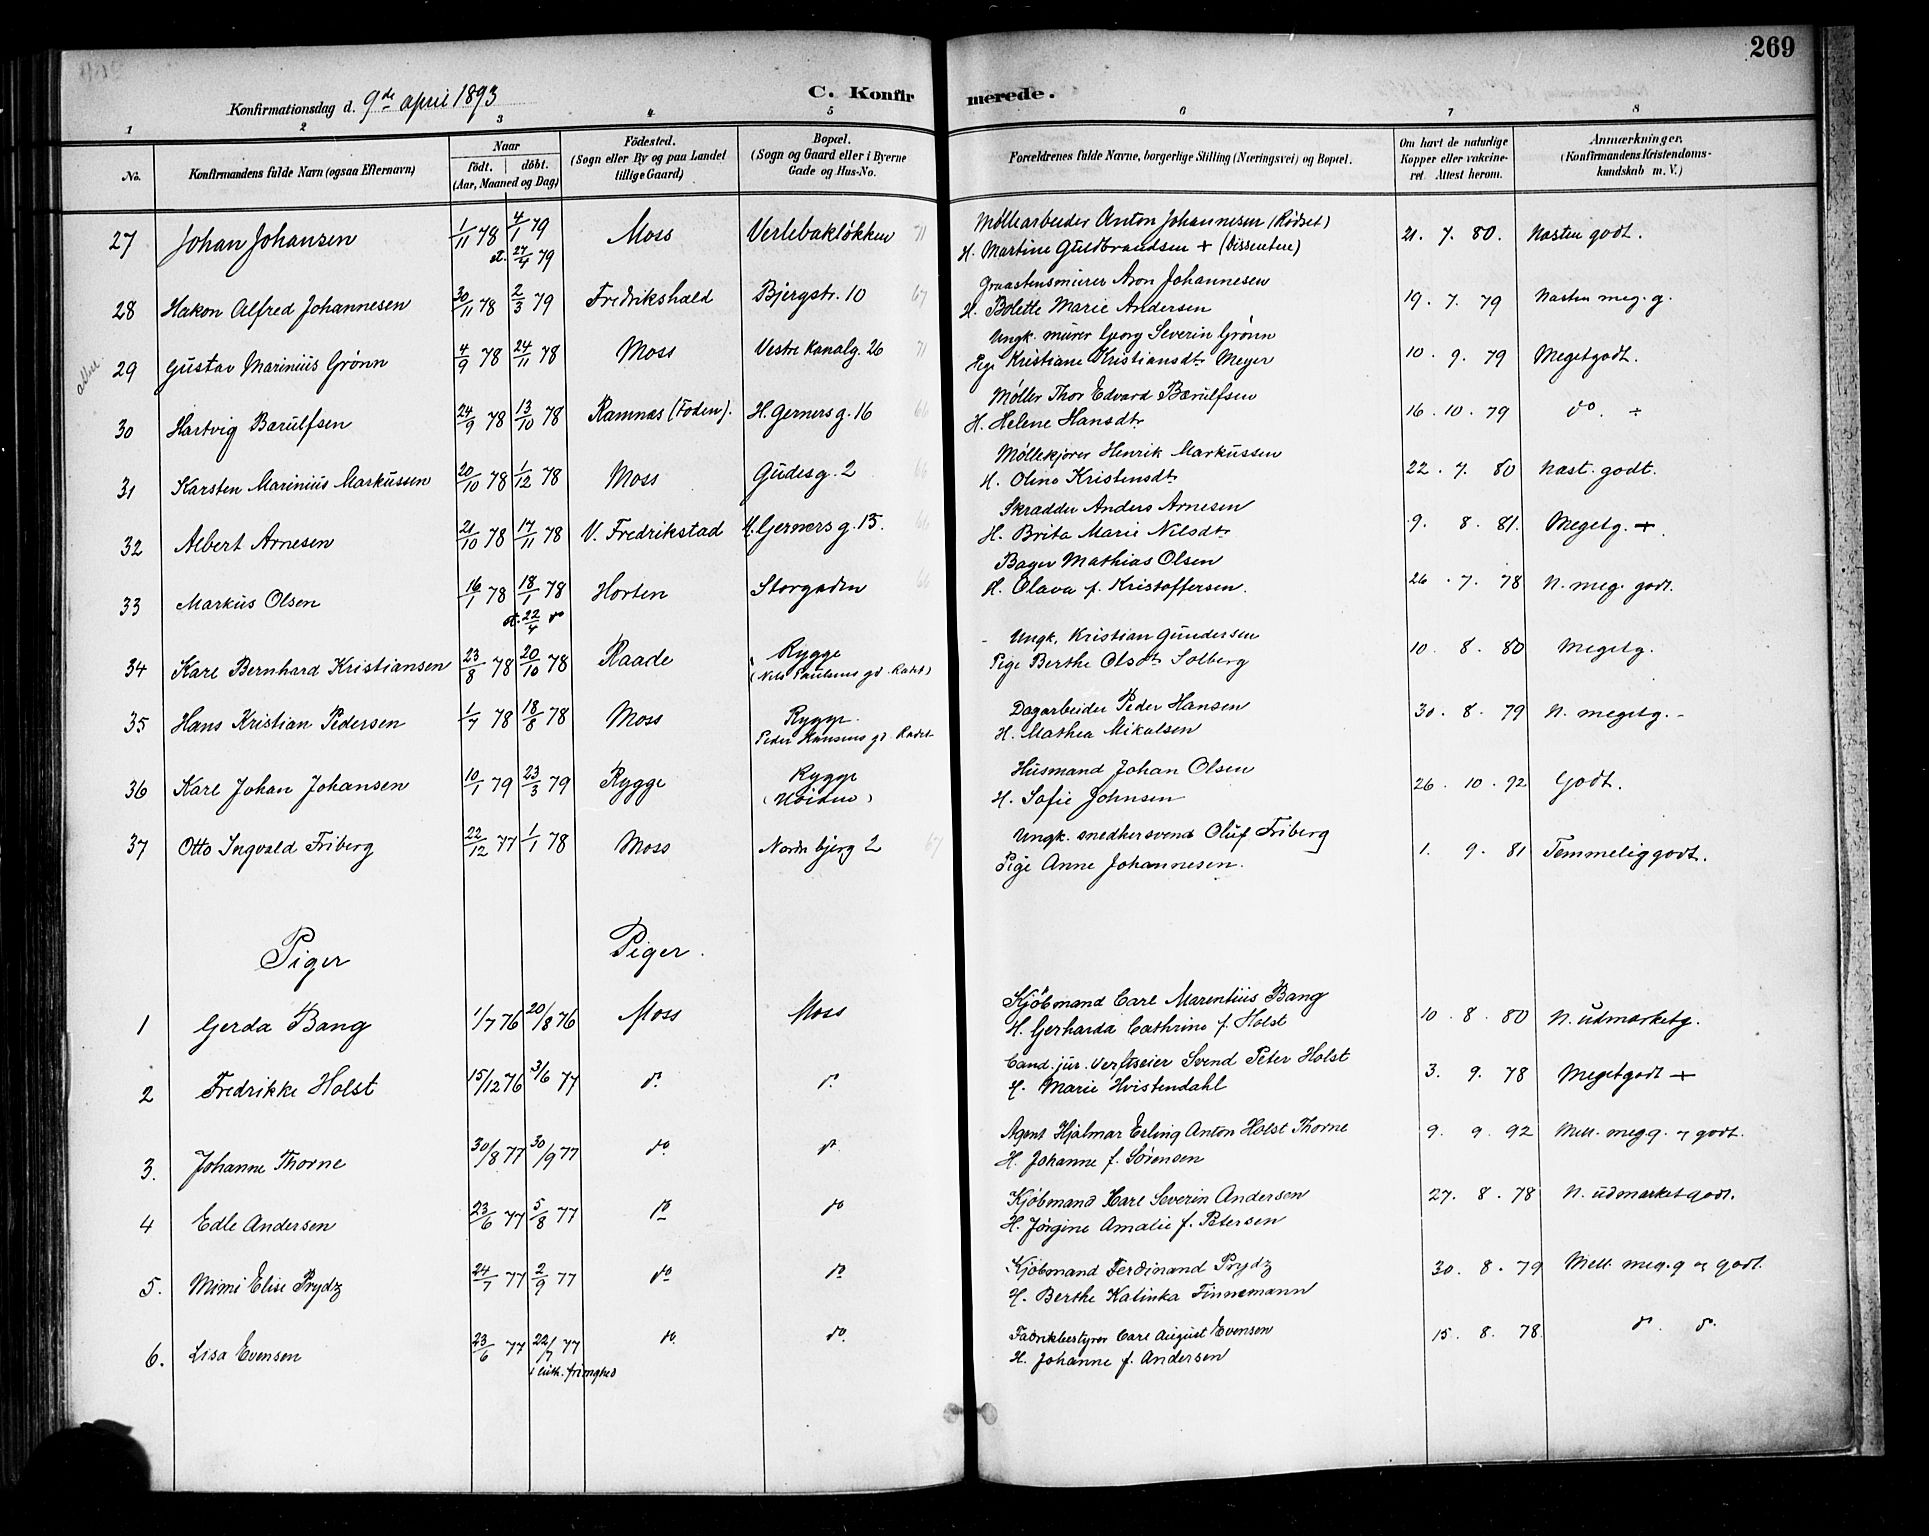 269
Konfirmationsdag d. 9de april 1893
C. Konfirmerede.
1 2 3 4 5 6 7 8
No.
Konfirmandens fulde Navn (ogsaa Efternavn)
Naar
födt. döbt.
(Aar, Maaned og Dag)
Födested.
(Sogn eller By og paa Landet
tillige Gaard)
Bopæl.
(Sogn og Gaard eller i Byerne
Gade og Hus-No.
Forældrenes fulde Navne, borgerlige Stilling (Næringsvei) og Bopæl.
Om havt de naturlige
Kopper eller vakcine-
ret. Attest herom.
Anmærkninger.
(Konfirmandens Kristendoms-
kundskab m. V.)
27 Johan Johansen 1/11 78 4/1 79 Moss Verlebakløkken 71 Møllearbeider Anton Johannesen (Rødset) 21. 7. 80. Næsten godt.
st. 27/4 79 H. Martine Guldbrandsen + (Dissentere)
28 Hakon Alfred Johannesen 30/11 78 2/3 79 Fredrikshald Bjergstr. 10 67 Graastensmurer Aron Johannesen 19. 7. 79 Næsten meg. g.
H. Bolette Marie Andersen
29 Gustav Marinius Grønn 4/9 78 24/11 78 Moss Vestre Kanalg. 26 71 Ungk. murer Georg Severin Grønn 10. 9. 79 Megetgodt.
Pige Kristiane Kristiansdtr Meyer
30 Hartvig Bærulfsen 24/9 78 13/10 78 Ramnæs (Foden). H. Gerners g. 16 66 Møller Thor Edvard Bærulfsen 16. 10. 79 do. ÷
H. Helene Hansdtr
31 Karsten Marinius Markussen 20/10 78 1/12 78 Moss Gudesg. 2 66 Møllekjører Henrik Markussen 22. 7. 80 Næst. godt.
H. Oline Kristensdtr
32 Albert Arnesen 21/10 78 17/11 78 V. Fredrikstad H. Gerners g. 15. 66 Skrædder Anders Arnesen 9. 8. 81. Megetg. +.
H. Brita Marie Nilsdtr
33 Markus Olsen 16/1 78 18/1 78 Horten Storgaden 66 Bager Mathias Olsen 26. 7. 78 N. meg. godt.
st. 22/4 do H. Olava f. Kristoffersen.
34 Karl Bernhard Kristiansen 23/8 78 20/10 78 Raade Rygge Ungk. Kristian Gundersen 10. 8. 80 Megetg.
(Nils Paulsens gd. Rødst) Pige Berthe Olsdtr Solberg
35 Hans Kristian Pedersen 1/7 78 18/8 78 Moss Rygge. Dagarbeider Peder Hansen 30. 8. 79 N. megetg. -
Peder Hansens gd. Rødst H. Mathea Mikalsen
36 Karl Johan Johansen 10/1 79 23/3 79 Rygge Rygge Husmand Johan Olsen 26. 10. 92 Godt.
(Høiden) H. Sofie Johnsen
37 Otto Ingvald Friberg 22/12 77 1/1 78 Moss Nordre bjerg 2 67 Ungk. snedkersvend Oluf Friberg 1. 9. 81 Temmelig godt.
Pige Anne Johannesen.
Piger Piger.
1 Gerda Bang 1/7 76 20/8 76 Moss Moss Kjøbmand Carl Marentius Bang 10. 8. 80 N. udmærketg.
H. Gerharda Cathrine f. Holst
2 Fredrikke Holst 15/12 76 3/6 77 do. do. Cand. jur. Verftseier Svend Peter Holst 3. 9. 78 Megetgodt +
H. Marie Hvistendahl
3. Johanne Thorne 30/8 77 30/9 77 do. do. Agent Hjalmar Erling Anton Holst Thorne 9. 9. 92 Mell. meg g. og godt.
H. Johanne f. Sørensen
4 Edle Andersen 23/6 77 5/8 77 do do Kjøbmand Karl Severin Andersen 27. 8. 78 N. udmærketgodt.
H. Jørgine Amalie f. Petersen
5. Mimi Elise Prydz 24/7 77 2/9 77 do do Kjøbmand Ferdinand Prydz 30. 8. 79 Mell. meg. g og godt.
H. Berthe Katinka Finnemann
6. Lisa Evensen 23/6 77 22/7 77 do do. Fabrikbestyrer Carl August Evensen 15. 8. 78. do. do.
i luth. frimghed H. Johanne f. Andersen